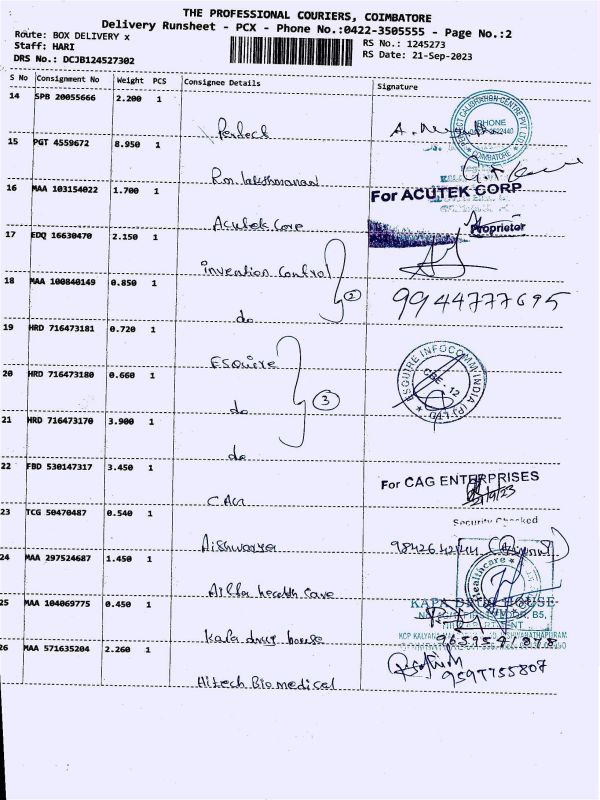 THE PROFESSIONAL COURIERS, COIMBATORE
Delivery Runsheet - PCX - Phone No.:0422-3505555 - Page No.:2
Route: BOX DELIVERY x
RS No.: 1245273
Staff: HARI
RS Date: 21-Sep-2023
DRS No.: DCJB124527302
S No Consignment No Weight PCS Consignee Details Signature
14 SPB 20055666 2.200 1
15 PGT 4559672 8.950 1
16 MAA 103154022 1.700 1
For ACUTEK CORP
Proprietor
Acutek Corp
17 EDQ 16630470 2.150 1
Invention Control
18 MAA 100840149 0.850 1
2
9944777695
do
19 HRD 716473181 0.720 1
ESQUIRE INFOCOMM INDIA (P) LTD
CBE - 12
Esquire
20 HRD 716473180 0.660 1
3
do
21 HRD 716473170 3.900 1
do
22 FBD 530147317 3.450 1
For CAG ENTERPRISES
CAG
23 TCG 50470487 0.540 1
Security Checked
Aishwarya
24 MAA 297524687 1.450 1
Healthcare
health care
25 MAA 104069775 0.450 1
KAPA DRUG HOUSE
kapa drug house
26 MAA 571635204 2.260 1
9597755807
Hitech Bio medical